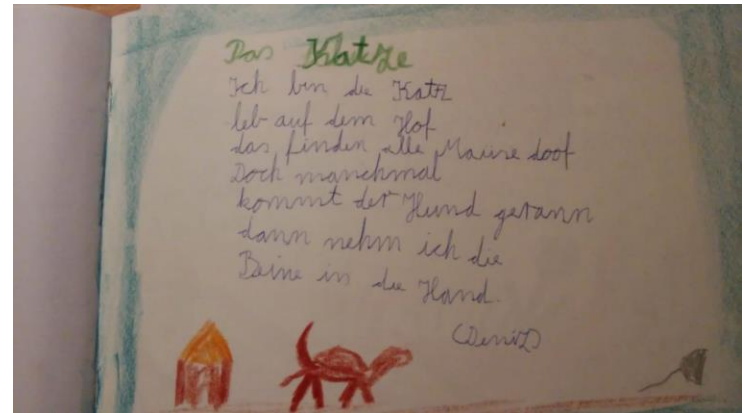 Das Katze
Ich bin die Katz
leb auf dem Hof
das finden alle Mäuse doof
Doch manchmal
kommt der Hund gerann
dann nehm ich die
Beine in die Hand.
(Deniz)